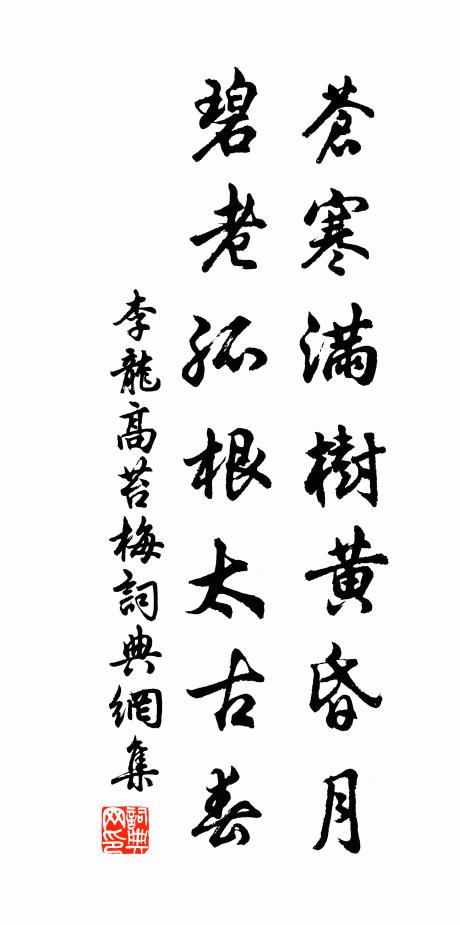 蒼寒滿樹黄昏月
碧老孤根太古春
李龍高苔梅詞典網集
詞典网印